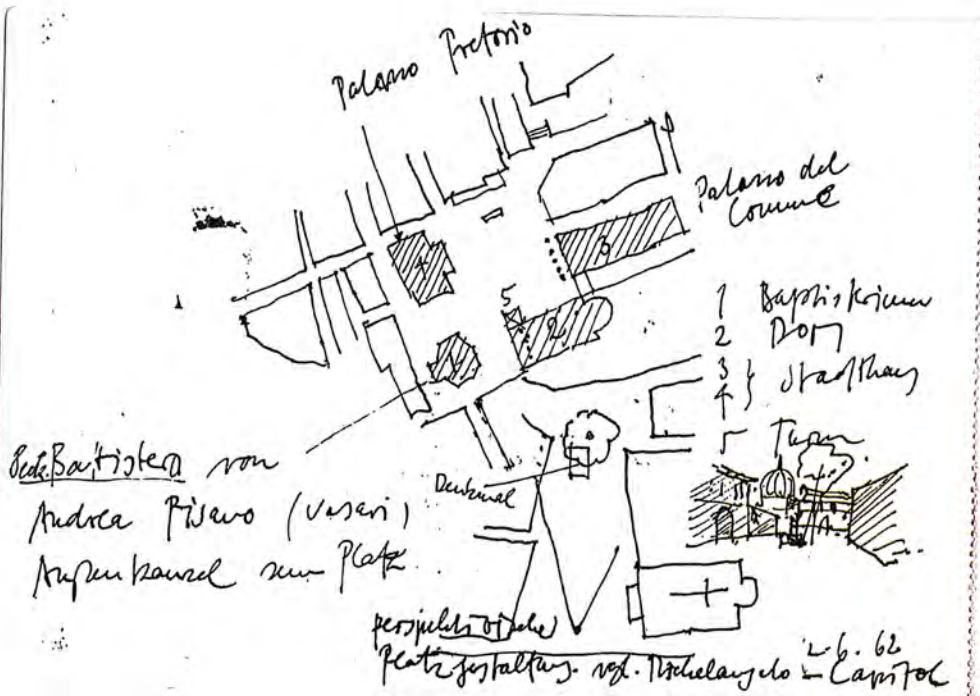 Palazzo Pretorio
Palazzo del
Comune
4
3
5
2
1
1 Baptisterium
2 DOM
3 } Stadthaus
4
5 Turm
Battistero von
Andrea Pisano (Vasari)
Außenkanzel zum Platz
Denkmal
perspektivische
Platzgestaltung. vgl. Michelangelo – Capitol
2.6.62